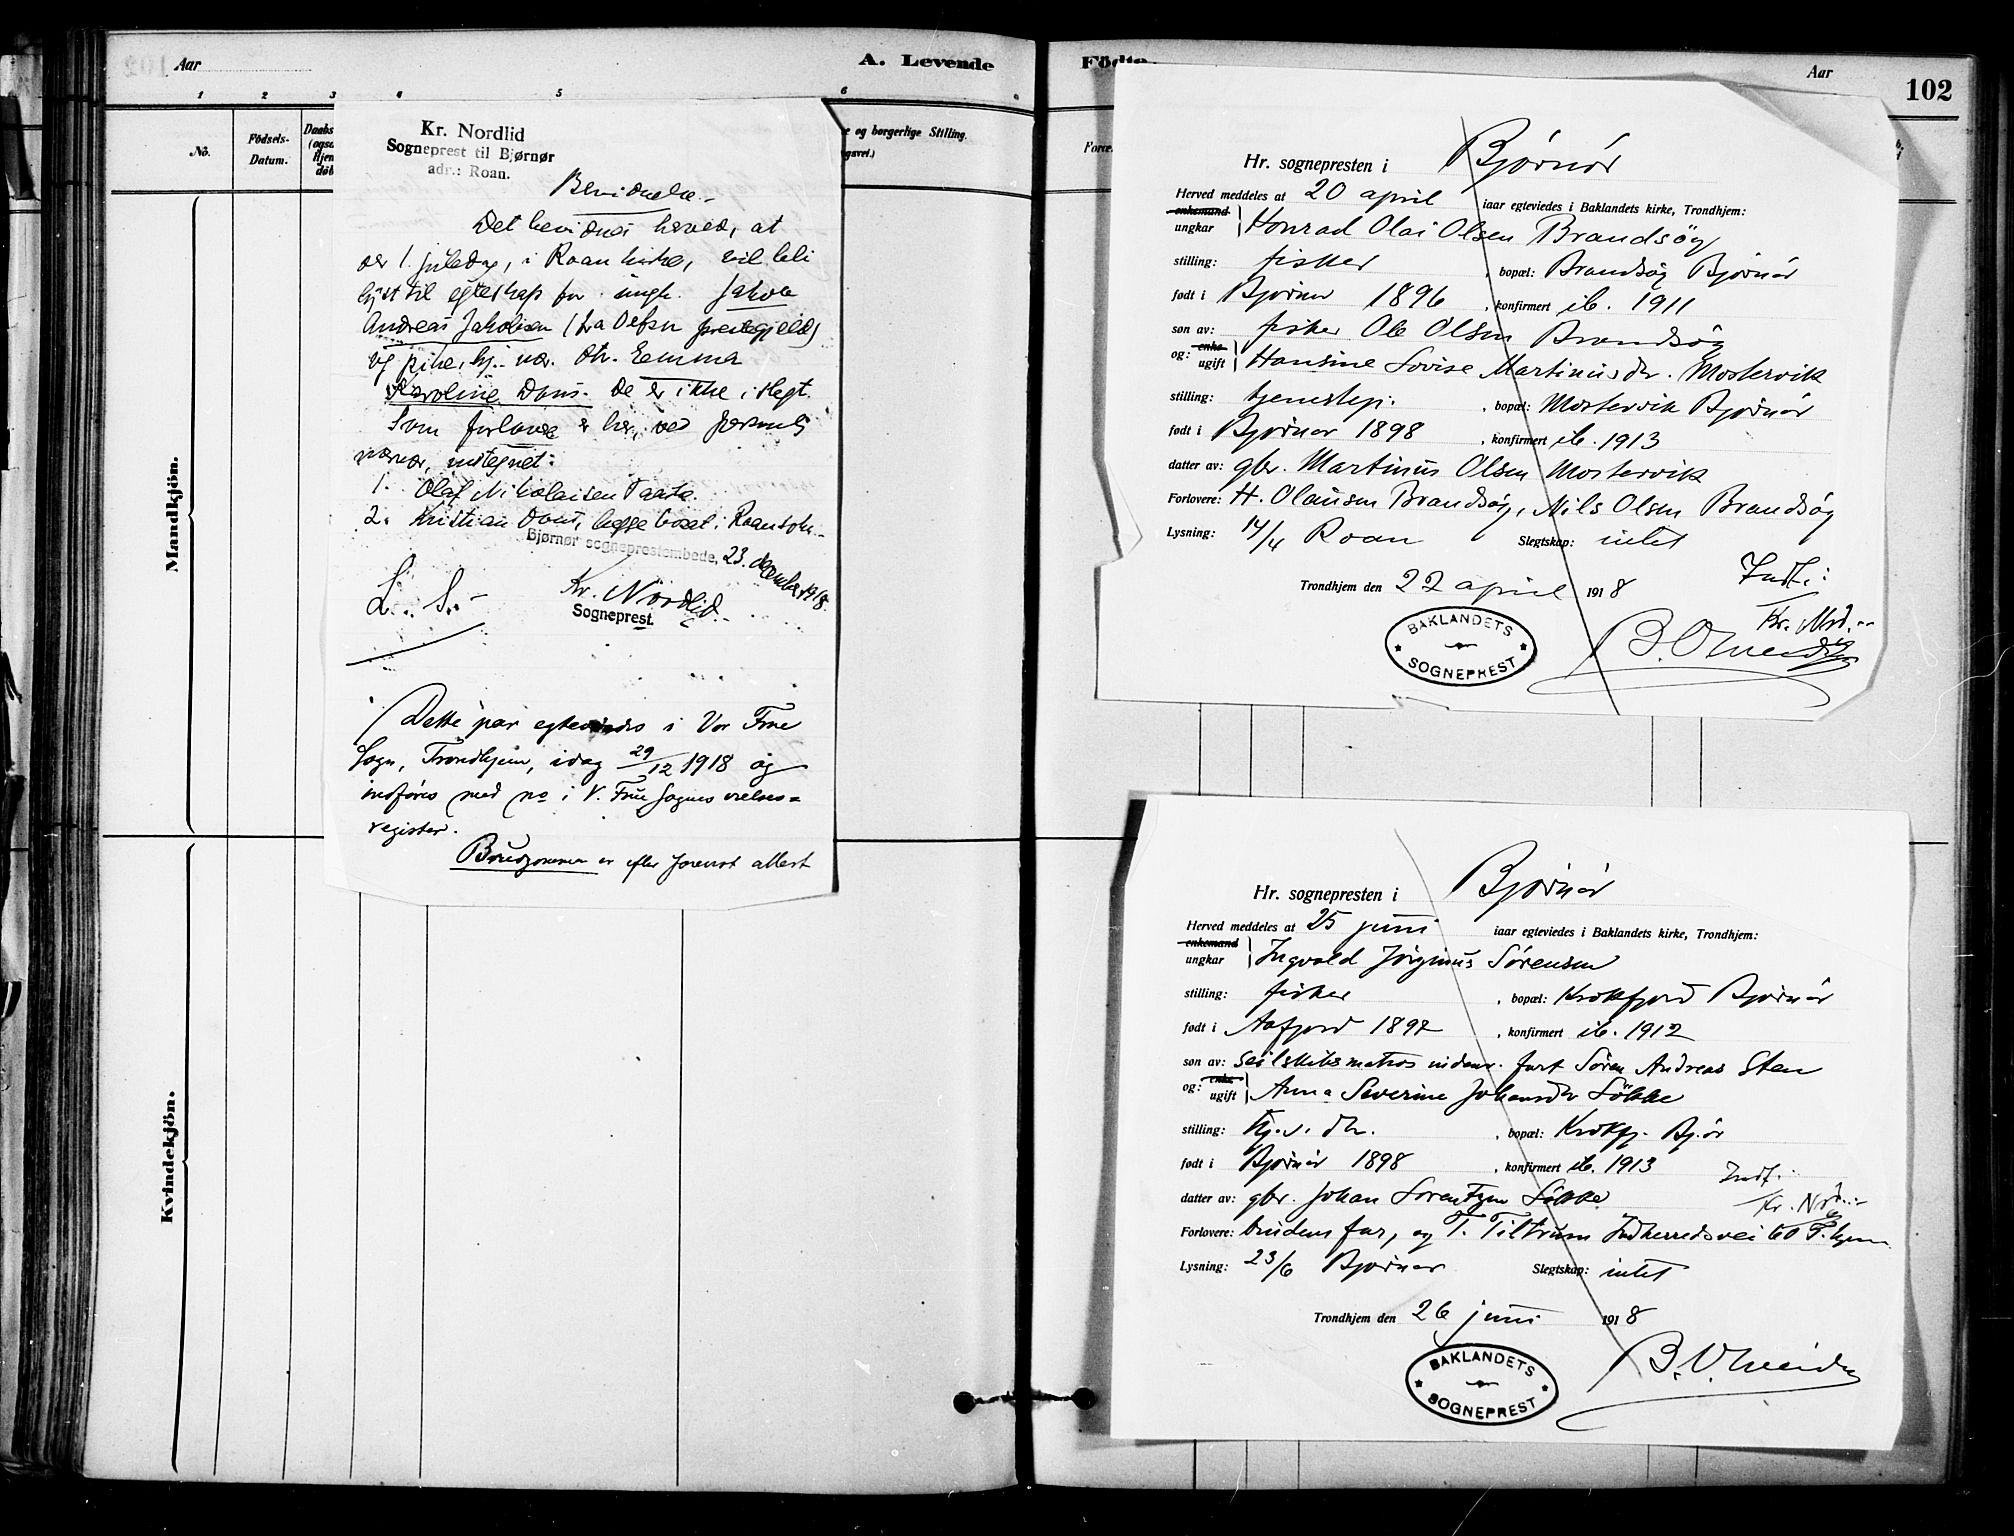 Aar
A. Levende
1 2 3 4 5 6
No.
Födsels-
Datum.
Mandkjön.
Kvindekjön.
Kr. Nordlid
Sogneprest til Bjørnør
adr.: Roan.
Bevidnelse.-
Det bevidnes herved, at
der 1. juledag, i Roan kirke, vil bli
lyst til egteskap for ungk. Jakob
Andreas Jakobsen (fra Vefsn prestegjeld)
og pike, hj. vær. dtr. Emma
Karoline Doms. De er ikke i slegt.
Som forlovere er her, ved personlig
nærvær, indtegnet:
1. Olaf Nikolaisen Taata
2. Kristian Doms, begge bosat i Roan sokn.
Bjørnør sogneprestembede, 23. december 1918.
L. S.-
Kr. Nordlid
Sogneprest.
Dette par egteviedes i Vor Frue
Sogn, Trondhjem, idag 29/12 1918 og
indføres med no i V. Frue Sogns vielses=
register.
Brudgommen er efter
Födte.
Aar
102
Hr. sognepresten i Bjørnør
Herved meddeles at 20 april iaar egteviedes i Baklandets kirke, Trondhjem:
enkemand
ungkar Konrad Olai Olsen Brandsøy
stilling: fisker, bopæl: Brandsøy Bjørnør
født i Bjørnør 1896, konfirmert ib. 1911
søn av: fisker Ole Olsen Brandsøy
og: enke
ugift Hansine Lovise Martinusdr. Mostervik
stilling: tjenestep., bopæl: Mostervik Bjørnør
født i Bjørnør 1898, konfirmert ib. 1913
datter av: gbr. Martinus Olsen Mostervik
Forlovere: H. Olausen Brandsøy, Nils Olsen Brandsøy
Lysning: 14/4 Roan Slegtskap: intet
Trondhjem den 22 april 1918
Indf.:
Kr. Nrd.
BAKLANDETS
SOGNEPREST
Hr. sognepresten i Bjørnør
Herved meddeles at 25 juni iaar egteviedes i Baklandets kirke, Trondhjem:
enkemand
ungkar Ingvald Jørginus Sørensen
stilling: fisker, bopæl: Krokfjord Bjørnør
født i Aafjord 1897, konfirmert ib. 1912
søn av: seilskibsmatros indenr. fart Søren Andreas Sten
og: enke
ugift Anna Severine Johansdr Løkke
stilling: hj. v. dtr., bopæl: Krokfj. Bj.ør
født i Bjørnør 1898, konfirmert ib. 1913
Indf.:
datter av: gbr. Johan Lorentzen Løkke
Kr. Nrd.
Forlovere: brudens far, og T. Tiltrum Indherredsvei 60 T.hjem
Lysning: 23/6 Bjørnør Slegtskap: intet
Trondhjem den 26 juni 1918
BAKLANDETS
SOGNEPREST